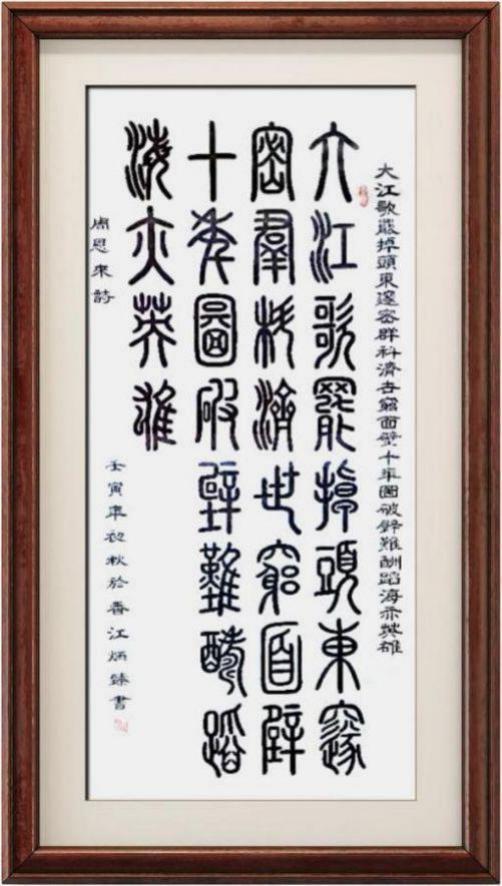 大江歌罷掉頭東邃密群科濟世窮面壁十年圖破壁難酬蹈海亦英雄
大江歌罷掉頭東邃
密羣科濟世窮面壁
十年圖破壁難酬蹈
海亦英雄
周恩來詩
壬寅年初秋於香江炳臻書